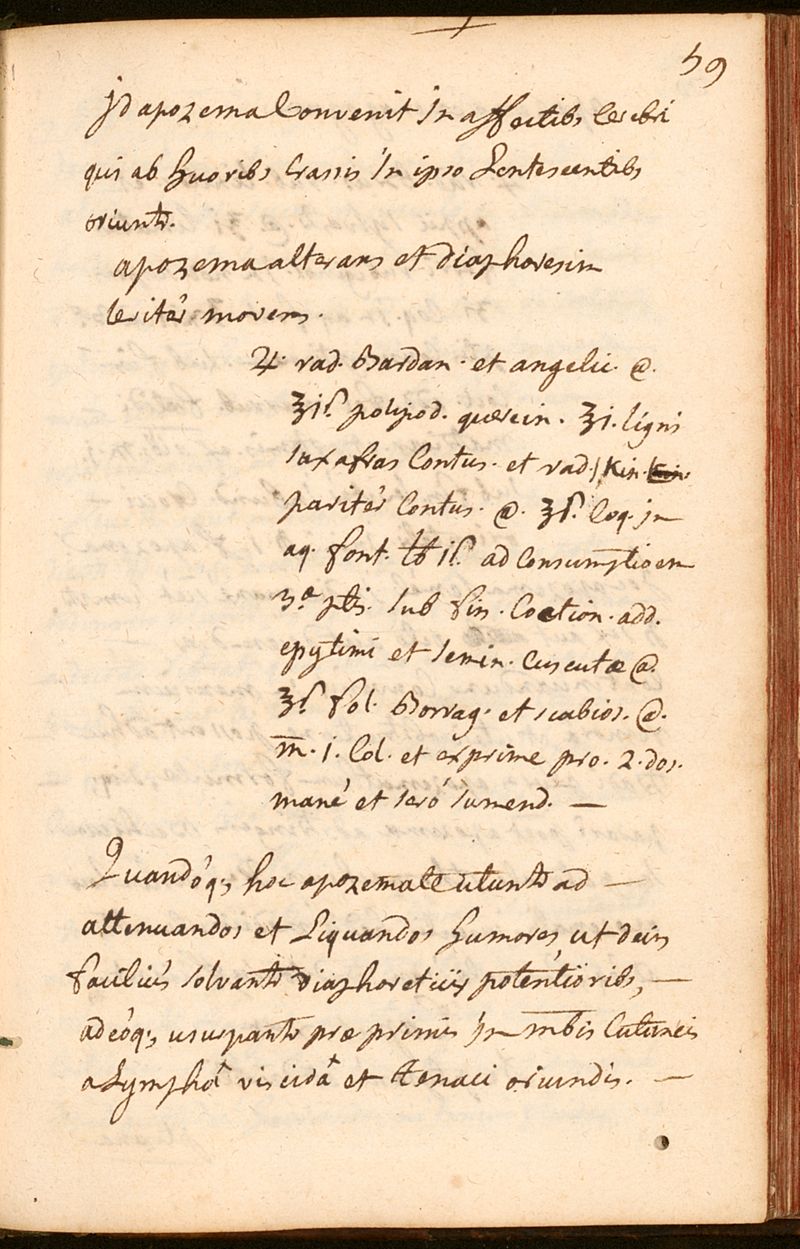 59
jd apozema Convenit In affectibs Cerebri
qui ab huoribs Crassis In ipso Lentescentibs
oriuntr.
apozema alterans et diaphoresim
levitér movens.
♃. rad. Bardan. et angelic. @.
ʒiſ. polipod. quercin. ʒi. ligni
saxafras Contus. et rad. Kin.
paritér Contus. @. ʒſ. Coq. jn
aq. font. ℔ iſ. ad Consumptioem
3.æ ptis. sub fin. Coction. add.
epytimi et semin. Cuscutæ @.
ʒſ. fol. Borrag. et scabios. @.
m. i. Col. et exprime pro. 2. dos.
mané et seró sumend. —
Quandóq; hoc apozemate utuntr ad —
attenuandos et Liquandos humores ut dein
faciliús solvantr diaphoreticis potentioribs, —
adeóq; usurpantr præ primis In mbis Cutaneis
a Lymphâ viscidâ et tenaci oriundis. —